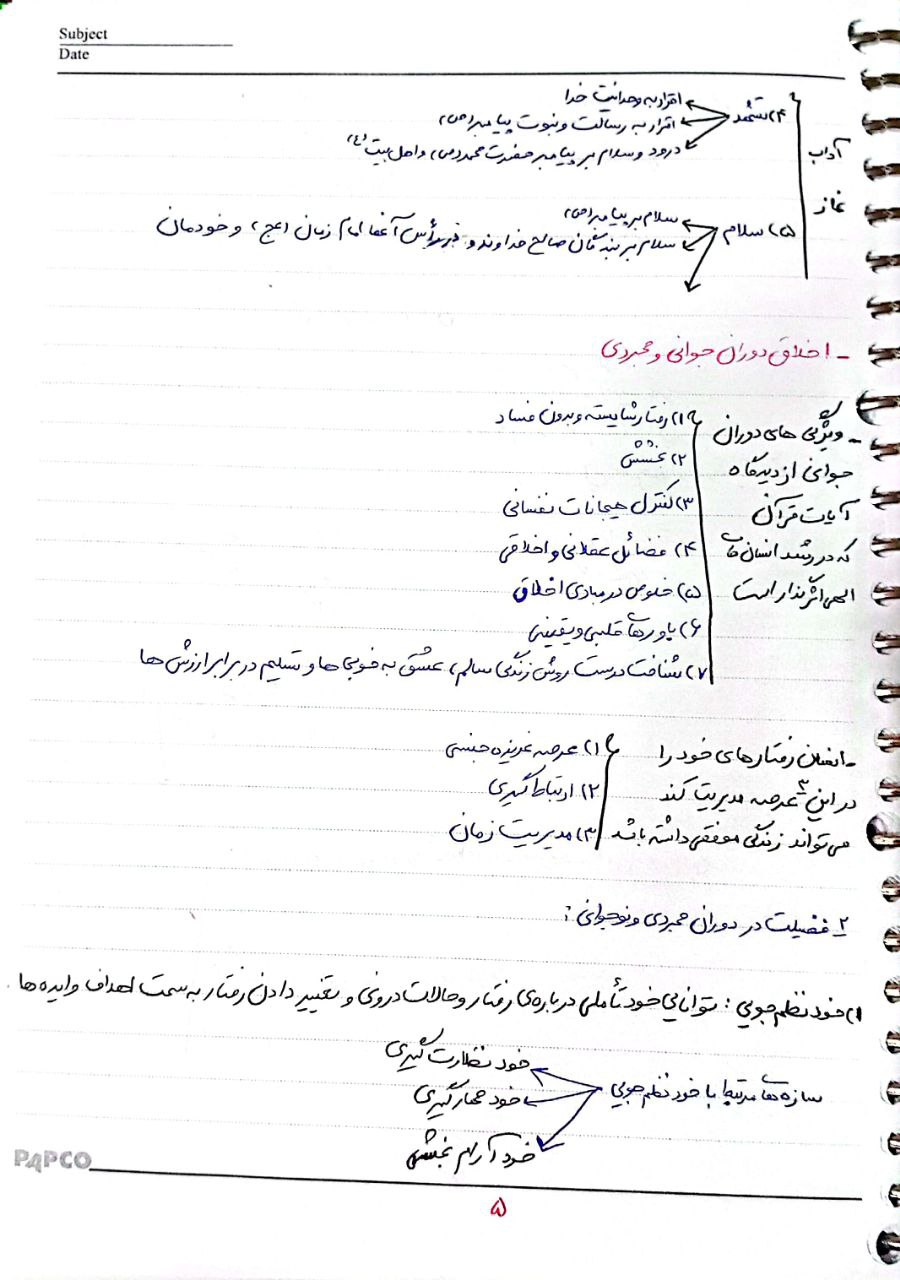 Subject
Date
آداب نماز
۴) تشهد
اقرار به وحدانیت خدا
اقرار به رسالت و نبوت پیامبر (ص)
درود و سلام بر پیامبر حضرت محمد (ص) و اهل بیت (ع)
۵) سلام
سلام بر پیامبر (ص)
سلام بر بندگان صالح خداوند و در رأس آنها امام زمان (عج) و خودمان
- اخلاق دوران جوانی و مجردی
- ویژگی های دوران
جوانی از دیدگاه
آیات قرآن
که در رشد انسان های
الهی اثرگذار است
۱) رفتار شایسته و بدون فساد
۲) بخشش
۳) کنترل هیجانات نفسانی
۴) فضائل عقلانی و اخلاقی
۵) خلوص در مبادی اخلاق
۶) باورهای قلبی و یقینی
۷) شناخت درست روش زندگی سالم، عشق به خوبی ها و تسلیم در برابر ارزش ها
- انسان رفتارهای خود را
در این ۳ عرصه مدیریت کند
می تواند زندگی موفقی داشته باشد
۱) عرصه غریزه جنسی
۲) ارتباط گیری
۳) مدیریت زمان
۲ فضیلت در دوران مجردی و نوجوانی :
۱) خود نظم جویی : توانایی خود تأملی درباره ی رفتار و حالات درونی و تغییر دادن رفتار به سمت اهداف و ایده ها
سازه های مرتبط با خود نظم جویی
خود نظارت گیری
خود مهارگیری
خود آرام بخشی
PAPCO
۵